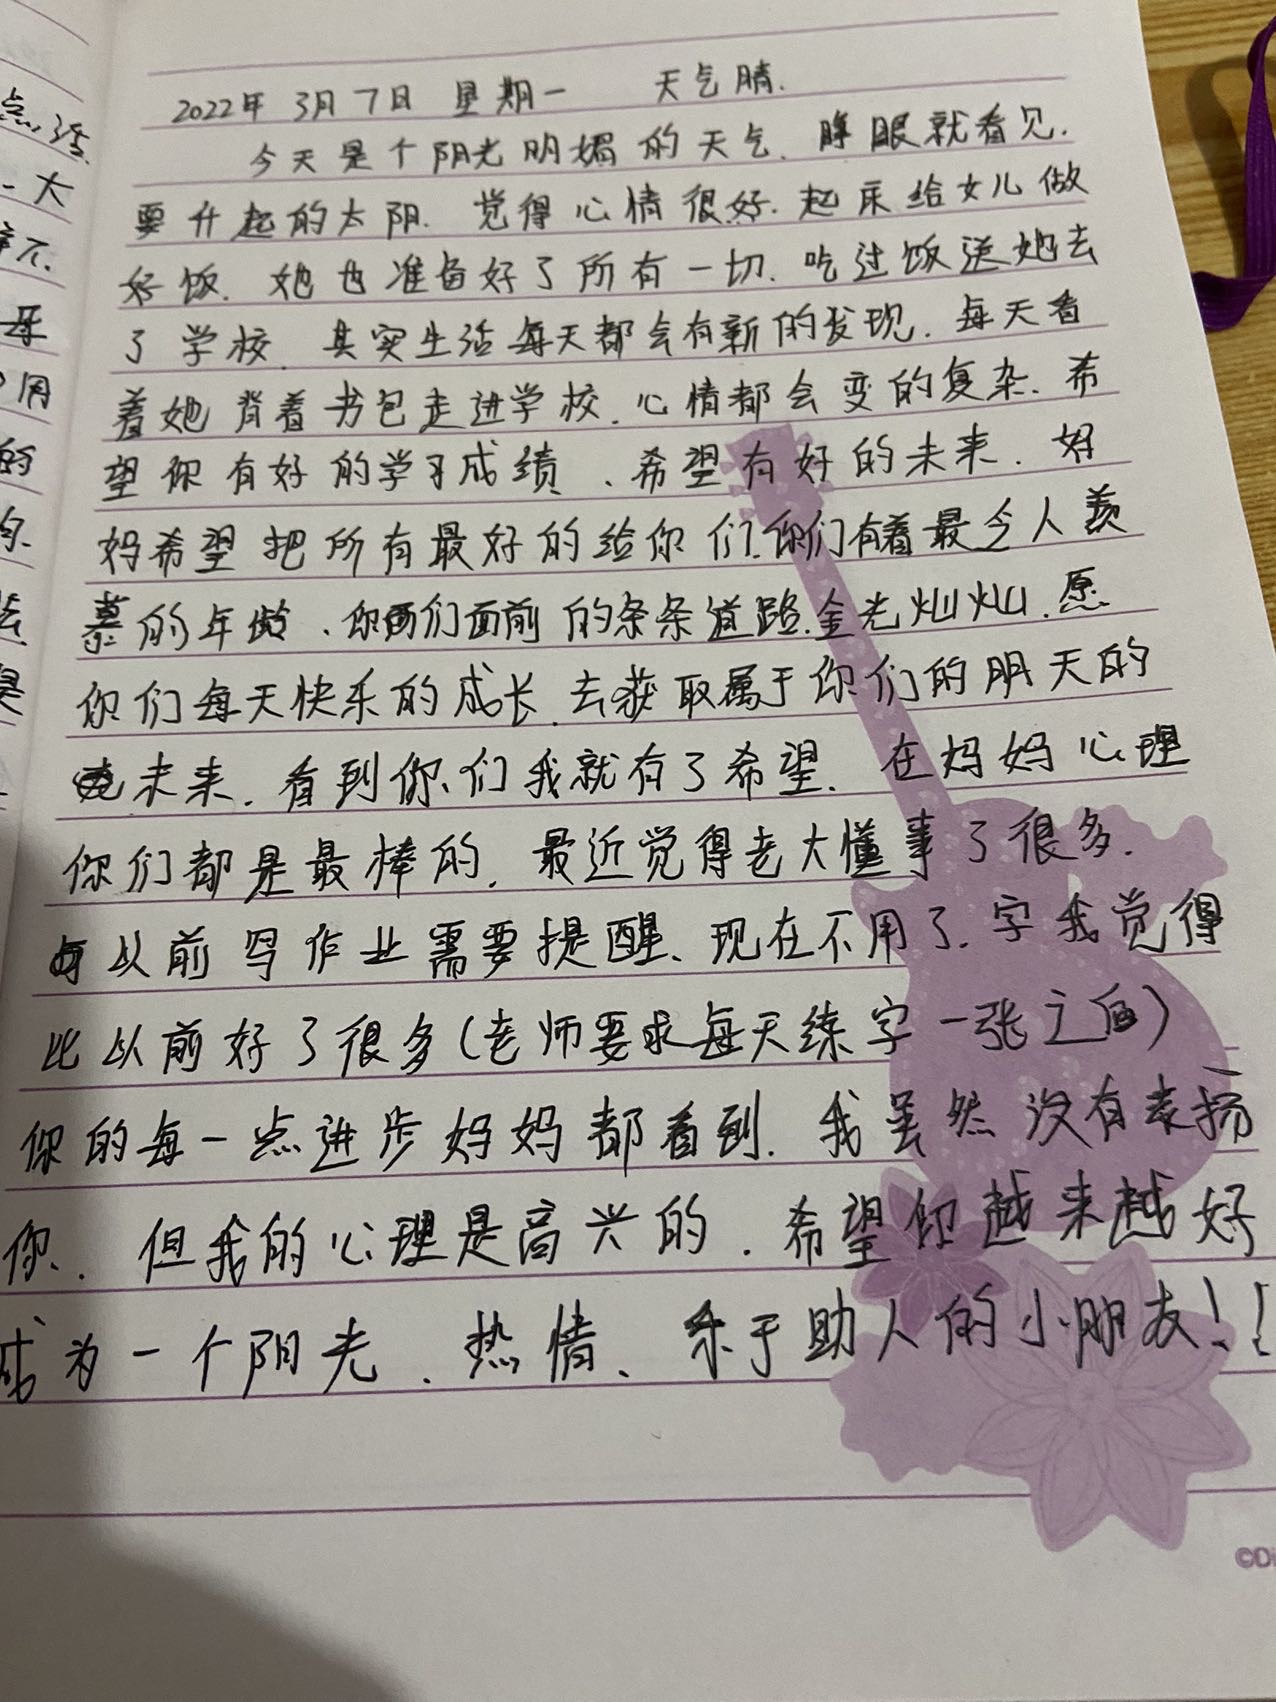 2022年 3月 7日 星期一 天气晴.
今天是个阳光明媚的天气、睁眼就看见.
要升起的太阳. 觉得心情很好. 起床给女儿做
好饭. 她也准备好了所有一切. 吃过饭送她去
了学校. 其实生活每天都会有新的发现. 每天看
着她背着书包走进学校. 心情都会变的复杂. 希
望你有好的学习成绩、希望有好的未来. 妈
妈希望把所有最好的给你们.你们有着最令人羡
慕的年龄、你们面前的条条道路.金光灿灿.愿
你们每天快乐的成长.去获取属于你们的明天的
未来. 看到你们我就有了希望. 在妈妈心理
你们都是最棒的. 最近觉得老大懂事了很多.
以前写作业需要提醒、现在不用了. 字我觉得
比以前好了很多(老师要求每天练字一张之后)
你的每一点进步妈妈都看到. 我虽然没有表扬
你. 但我的心理是高兴的. 希望你越来越好
成为一个阳光、热情、乐于助人的小朋友!!
点
大
©Di